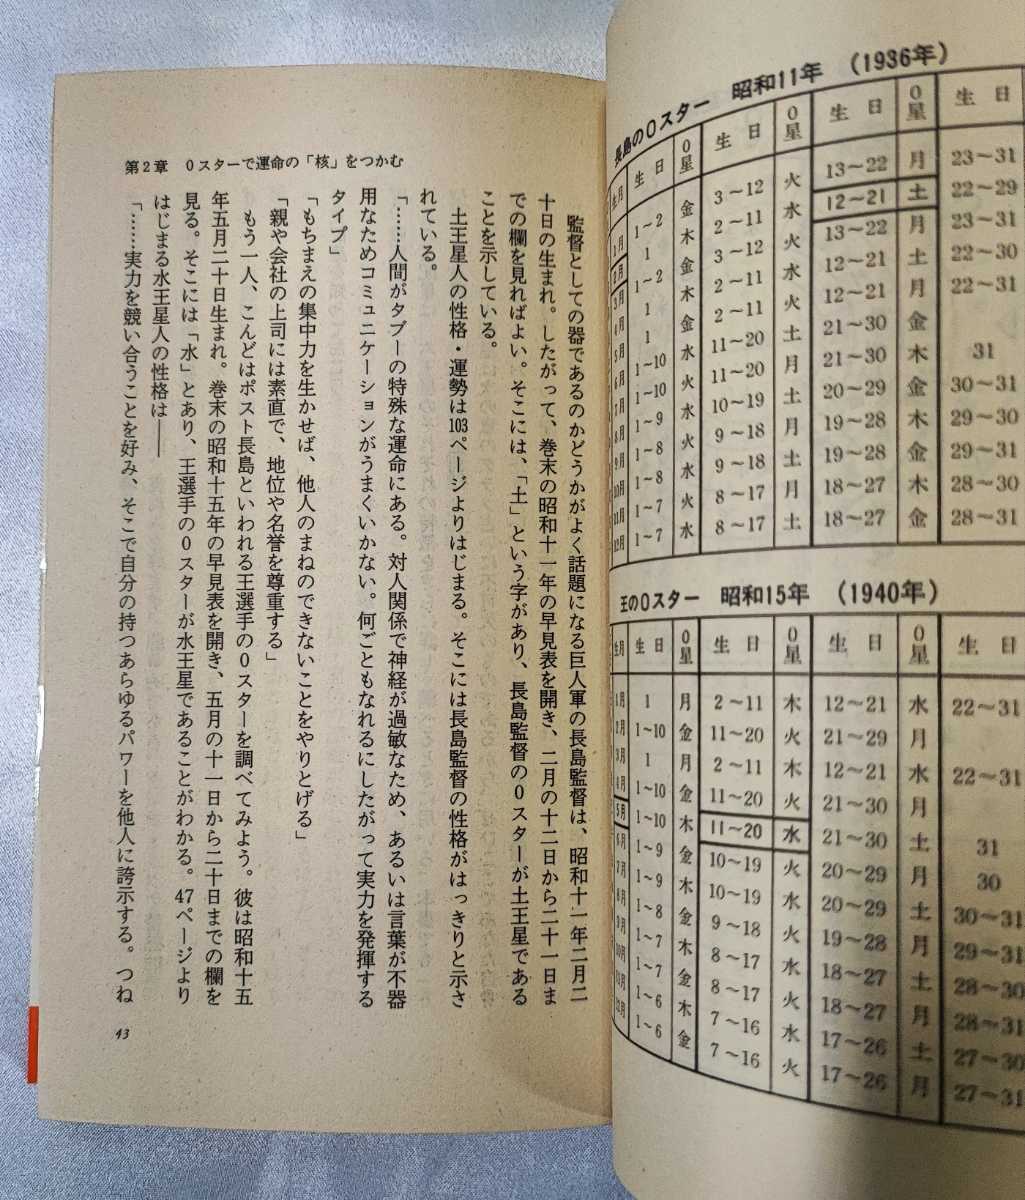 長島の0スター 昭和11年 (1936年)
生月 生日 0星 生日 0星 生日 0星 生日
1月 1～2 金 3～12 火 13～22 月 23～31
2月 1 木 2～11 水 12～21 土 22～29
3月 1～2 金 3～12 火 13～22 月 23～31
4月 1 木 2～11 水 12～21 土 22～30
5月 1 金 2～11 火 12～21 月 22～31
6月 1～10 水 11～20 土 21～30 金
7月 1～10 火 11～20 月 21～30 木 31
8月 1～9 水 10～19 土 20～29 金 30～31
9月 1～8 火 9～18 月 19～28 木 29～30
10月 1～8 水 9～18 土 19～28 金 29～31
11月 1～7 火 8～17 月 18～27 木 28～30
12月 1～7 水 8～17 土 18～27 金 28～31
王の0スター 昭和15年 (1940年)
生月 生日 0星 生日 0星 生日 0星 生日
1月 1 月 2～11 木 12～21 水 22～31
2月 1～10 金 11～20 火 21～29 月
3月 1 月 2～11 木 12～21 水 22～31
4月 1～10 金 11～20 火 21～30 月
5月 1～10 木 11～20 水 21～30 土 31
6月 1～9 金 10～19 火 20～29 月 30
7月 1～9 木 10～19 水 20～29 土 30～31
8月 1～8 金 9～18 火 19～28 月 29～31
9月 1～7 木 8～17 水 18～27 土 28～30
10月 1～7 金 8～17 火 18～27 月 28～31
11月 1～6 木 7～16 水 17～26 土 27～30
12月 1～6 金 7～16 火 17～26 月 27～31
第2章 0スターで運命の「核」をつかむ
監督としての器であるのかどうかがよく話題になる巨人軍の長島監督は、昭和十一年二月二
十日の生まれ。したがって、巻末の昭和十一年の早見表を開き、二月の十二日から二十一日ま
での欄を見ればよい。そこには、「土」という字があり、長島監督の0スターが土王星である
ことを示している。
土王星人の性格・運勢は103ページよりはじまる。そこには長島監督の性格がはっきりと示さ
れている。
「……人間がタブーの特殊な運命にある。対人関係で神経が過敏なため、あるいは言葉が不器
用なためコミュニケーションがうまくいかない。何ごともなれるにしたがって実力を発揮する
タイプ」
「もちまえの集中力を生かせば、他人のまねのできないことをやりとげる」
「親や会社の上司には素直で、地位や名誉を尊重する」
もう一人、こんどはポスト長島といわれる王選手の0スターを調べてみよう。彼は昭和十五
年五月二十日生まれ。巻末の昭和十五年の早見表を開き、五月の十一日から二十日までの欄を
見る。そこには「水」とあり、王選手の0スターが水王星であることがわかる。47ページより
はじまる水王星人の性格は――
「……実力を競い合うことを好み、そこで自分の持つあらゆるパワーを他人に誇示する。つね
43